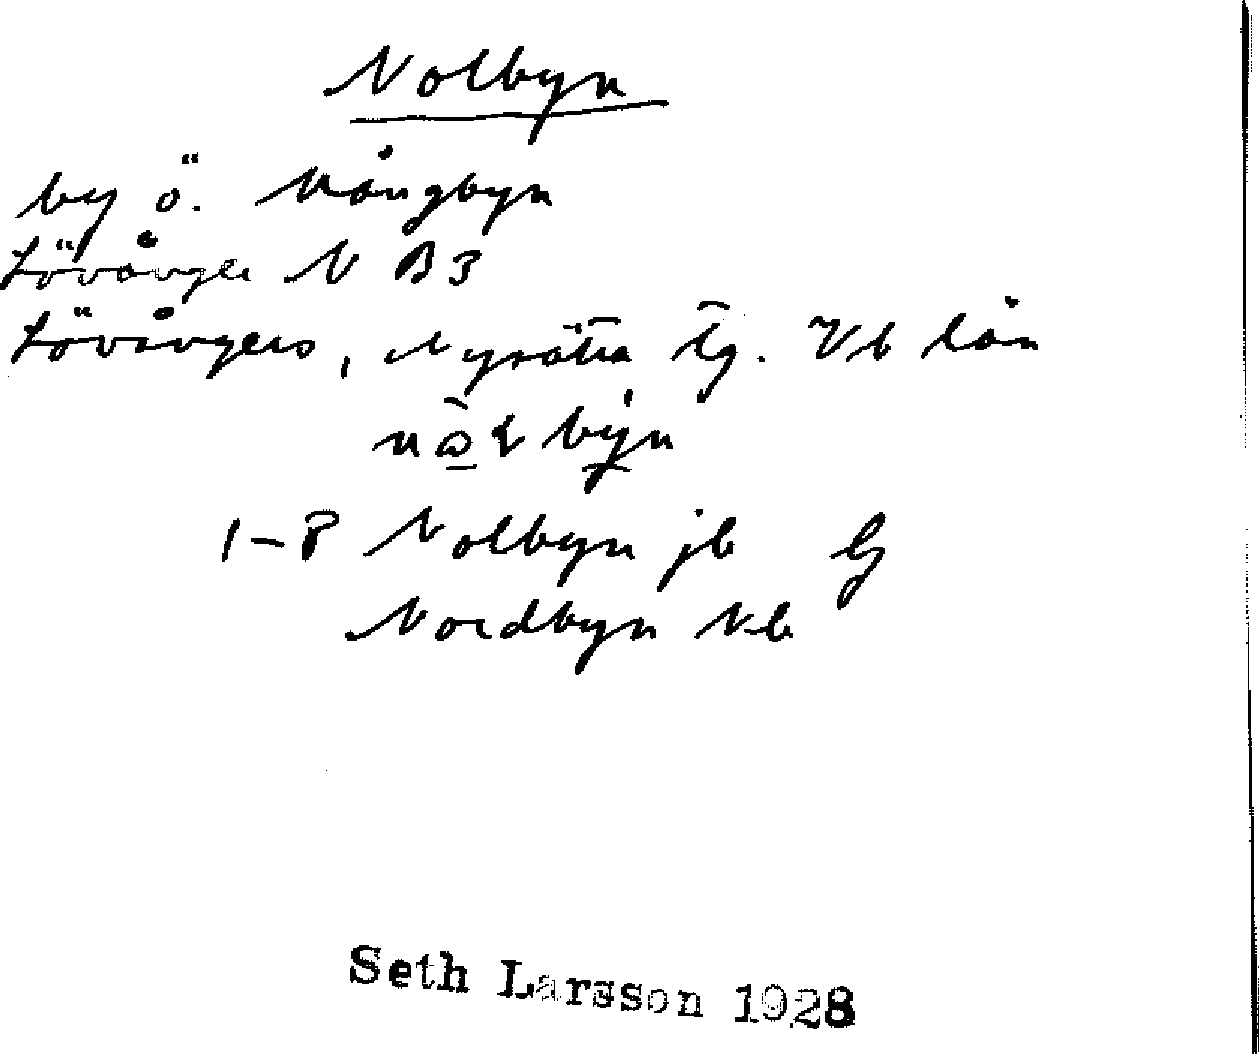 Nolbyn
by ö. Mångbyn
Lövånger N B3
Lövångers, Nysätra tg. Vb län
1-8 Nolbyn jb G
Nordbyn
Seth Larsson 1928